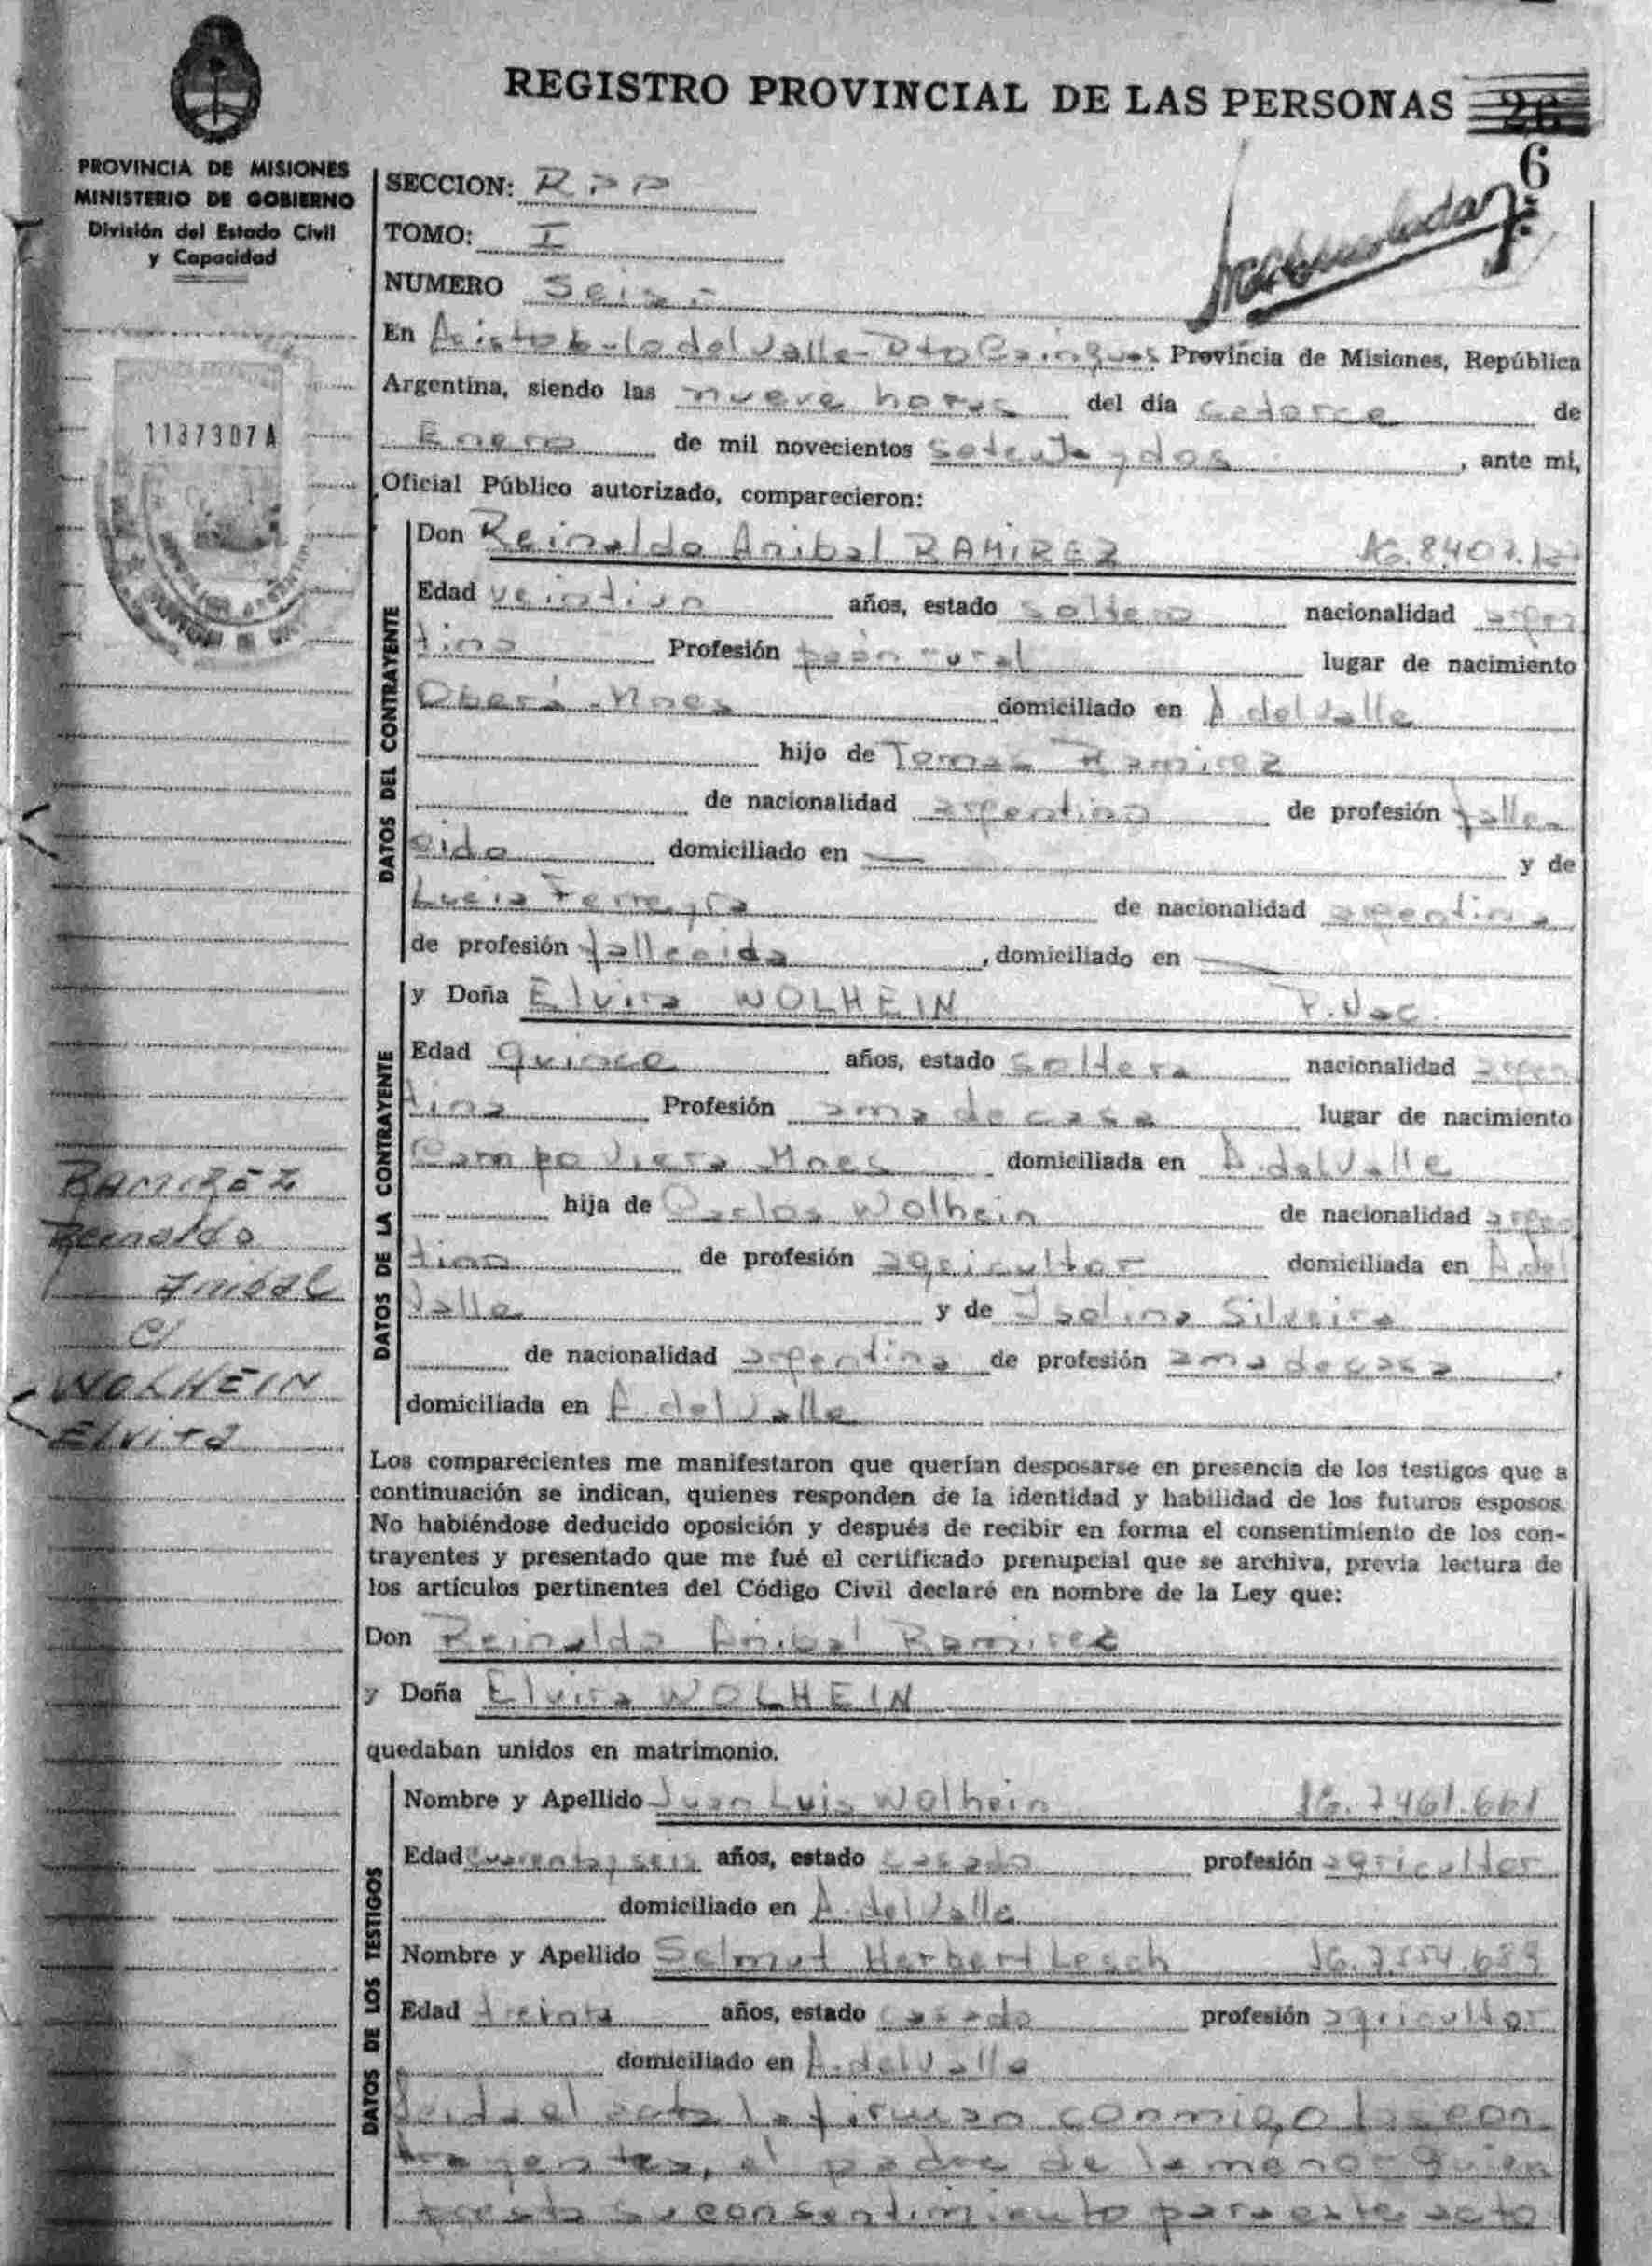 REGISTRO PROVINCIAL DE LAS PERSONAS
6
PROVINCIA DE MISIONES
MINISTERIO DE GOBIERNO
División del Estado Civil
y Capacidad
1137307A
SECCION: RPP
TOMO: I
NUMERO Seis.-
En Aristobulo del Valle - Dto Cainguas Provincia de Misiones, República
Argentina, siendo las nueve horas del día catorce de
Enero de mil novecientos setenta y dos, ante mi,
Oficial Público autorizado, comparecieron:
DATOS DEL CONTRAYENTE
Don Reinaldo Anibal RAMIREZ
Edad veintiun años, estado soltero nacionalidad argen
tino Profesión peón rural lugar de nacimiento
Oberá - Mnes domiciliado en A. del Valle
hijo de Tomas Ramirez
de nacionalidad argentino de profesión falle
cido domiciliado en — y de
Lucia Ferreyra de nacionalidad argentina
de profesión fallecida, domiciliado en —
DATOS DE LA CONTRAYENTE
y Doña Elvira WOLHEIN P. Nac.
Edad quince años, estado soltera nacionalidad argen
tina Profesión ama de casa lugar de nacimiento
Campo Viera Mnes domiciliada en A. del Valle
hija de Carlos Wolhein de nacionalidad argen
tino de profesión agricultor domiciliada en A. del
Valle y de Isolina Silveira
de nacionalidad argentina de profesión ama de casa,
domiciliada en A. del Valle
RAMIREZ
Reinaldo
Anibal
c/
WOLHEIN
Elvira
Los comparecientes me manifestaron que querían desposarse en presencia de los testigos que a
continuación se indican, quienes responden de la identidad y habilidad de los futuros esposos.
No habiéndose deducido oposición y después de recibir en forma el consentimiento de los con-
trayentes y presentado que me fué el certificado prenupcial que se archiva, previa lectura de
los artículos pertinentes del Código Civil declaré en nombre de la Ley que:
Don Reinaldo Anibal Ramirez
y Doña Elvira WOLHEIN
quedaban unidos en matrimonio.
DATOS DE LOS TESTIGOS
Nombre y Apellido Juan Luis Wolhein 7461.661
Edad cuarenta y seis años, estado casado profesión agricultor
domiciliado en A. del Valle
Nombre y Apellido Selmut Herbert Lesch
Edad treinta años, estado casado profesión agricultor
domiciliado en A. del Valle
Leida el acta la firman conmigo los con
trayentes, el padre de la menor quien
presta su consentimiento para este acto